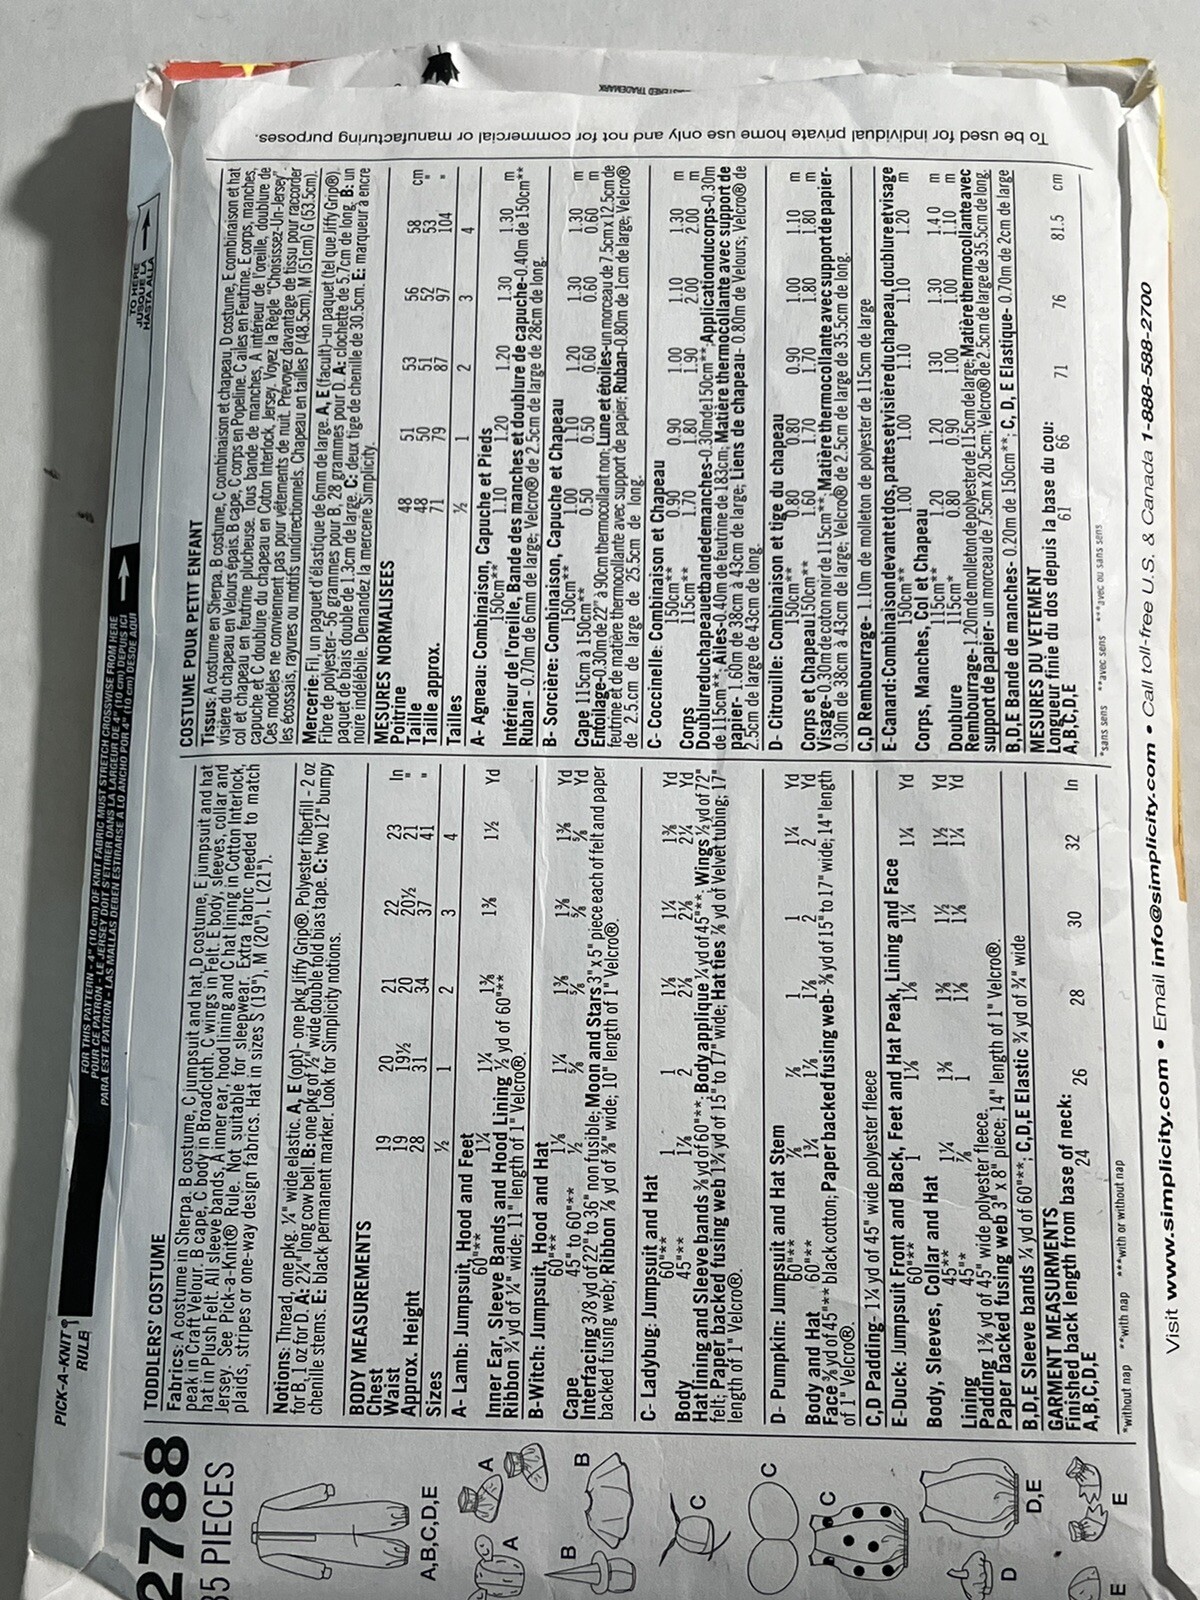 PICK-A-KNIT®
RULE
FOR THIS PATTERN - 4" (10 cm) OF KNIT FABRIC MUST STRETCH CROSSWISE FROM HERE
POUR CE PATRON - LE JERSEY DOIT S'ETIRER DANS LA LARGEUR DE 4" (10 cm) DEPUIS ICI
PARA ESTE PATRON - LAS MALLAS DEBEN ESTIRARSE A LO ACHO POR 4" (10 cm) DESDE AQUI
TO HERE
JUSQUE LA
HASTA ALLA
2788
35 PIECES
A,B,C,D,E
A
A
B
B
C
C
C
D,E
D
E
E
TODDLERS' COSTUME
Fabrics: A costume in Sherpa. B costume, C jumpsuit and hat, D costume, E jumpsuit and hat
peak in Craft Velour. B cape, C body in Broadcloth. C wings in Felt. E body, sleeves, collar and
hat in Plush Felt. All sleeve bands, A inner ear, hood lining and C hat lining in Cotton Interlock,
Jersey. See Pick-a-Knit® Rule. Not suitable for sleepwear. Extra fabric needed to match
plaids, stripes or one-way design fabrics. Hat in sizes S (19"), M (20"), L (21").
Notions: Thread, one pkg. ¼" wide elastic. A, E (opt)- one pkg Jiffy Grip®. Polyester fiberfill - 2 oz
for B, 1 oz for D. A: 2¼" long cow bell. B: one pkg of ½" wide double fold bias tape. C: two 12" bumpy
chenille stems. E: black permanent marker. Look for Simplicity notions.
BODY MEASUREMENTS
Chest 19 20 21 22 23 In
Waist 19 19½ 20 20½ 21 "
Approx. Height 28 31 34 37 41 "
Sizes ½ 1 2 3 4
A- Lamb: Jumpsuit, Hood and Feet
60"** 1¼ 1¼ 1⅜ 1⅜ 1½ Yd
Inner Ear, Sleeve Bands and Hood Lining ½ yd of 60"**
Ribbon ¾ yd of ¼" wide; 11" length of 1" Velcro®.
B-Witch: Jumpsuit, Hood and Hat
60"** 1⅛ 1¼ 1⅜ 1⅜ 1⅜ Yd
Cape 45" to 60"** ½ ⅝ ⅝ ⅝ ⅝ Yd
Interfacing 3/8 yd of 22" to 36" non fusible; Moon and Stars 3" x 5" piece each of felt and paper
backed fusing web; Ribbon ⅞ yd of ⅜" wide; 10" length of 1" Velcro®.
C- Ladybug: Jumpsuit and Hat
60"** 1 1 1⅛ 1¼ 1⅜ Yd
Body 45"** 1⅞ 2 2⅛ 2⅛ 2¼ Yd
Hat lining and Sleeve bands ⅜ yd of 60"**; Body applique ¼ yd of 45"**; Wings ½ yd of 72"
felt; Paper backed fusing web 1¾ yd of 15" to 17" wide; Hat ties ⅞ yd of Velvet tubing; 17"
length of 1" Velcro®.
D- Pumpkin: Jumpsuit and Hat Stem
60"** ⅞ ⅞ 1 1 1¼ Yd
Body and Hat 60"** 1¾ 1⅞ 1⅞ 2 2 Yd
Face ⅜ yd of 45"** black cotton; Paper backed fusing web- ⅜ yd of 15" to 17" wide; 14" length
of 1" Velcro®.
C,D Padding- 1¼ yd of 45" wide polyester fleece
E-Duck: Jumpsuit Front and Back, Feet and Hat Peak, Lining and Face
60"** 1 1⅛ 1⅛ 1¼ 1¼ Yd
Body, Sleeves, Collar and Hat
45"** 1¼ 1⅜ 1⅜ 1½ 1½ Yd
Lining 45"* ⅞ 1 1⅛ 1⅛ 1¼ Yd
Padding 1⅜ yd of 45" wide polyester fleece.
Paper backed fusing web 3" x 8" piece; 14" length of 1" Velcro®.
B,D,E Sleeve bands ¼ yd of 60"**; C,D,E Elastic ¾ yd of ¾" wide
GARMENT MEASURMENTS
Finished back length from base of neck:
A,B,C,D,E 24 26 28 30 32 In
*without nap **with nap ***with or without nap
COSTUME POUR PETIT ENFANT
Tissus: A costume en Sherpa. B costume, C combinaison et chapeau, D costume, E combinaison et
visière du chapeau en Velours épais. B cape, C corps en Popeline. C ailes en Feutrine. E corps, manches,
col et chapeau en feutrine plucheuse. Tous bande de manches, A intérieur de l'oreille, doublure de
capuche et C doublure du chapeau en Coton Interlock, Jersey. Voyez la Règle "Choisissez-Un-Jersey".
Ces modèles ne conviennent pas pour vêtements de nuit. Prévoyez davantage de tissu pour raccorder
les écossais, rayures ou motifs unidirectionnels. Chapeau en tailles P (48.5cm), M (51cm) G (53.5cm).
Mercerie: Fil, un paquet d'élastique de 6mm de large. A, E (facult)-un paquet (tel que Jiffy Grip®).
Fibre de polyester- 56 grammes pour B, 28 grammes pour D. A: clochette de 5.7cm de long. B: un
paquet de biais double de 1.3cm de large. C: deux tige de chenille de 30.5cm. E: marqueur à encre
noire indélébile. Demandez la mercerie Simplicity.
MESURES NORMALISEES
Poitrine 48 51 53 56 58 cm
Taille 48 50 51 52 53 "
Taille approx. 71 79 87 97 104 "
Tailles ½ 1 2 3 4
A- Agneau: Combinaison, Capuche et Pieds
150cm** 1.10 1.20 1.20 1.30 1.30 m
Intérieur de l'oreille, Bande des manches et doublure de capuche-0.40m de 150cm**
Ruban - 0.70m de 6mm de large; Velcro® de 2.5cm de large de 28cm de long.
B- Sorcière: Combinaison, Capuche et Chapeau
150cm** 1.00 1.10 1.20 1.30 1.30 m
Cape 115cm à 150cm** 0.50 0.50 0.60 0.60 0.60 m
Entoilage-0.30m de 22" à 90cm thermocollant non; Lune et étoiles-un morceau de 7.5cm x 12.5cm de
feutrine et de matière thermocollante avec support de papier; Ruban-0.80m de 1cm de large; Velcro®
de 2.5cm de large de 25.5cm de long.
C- Coccinelle: Combinaison et Chapeau
150cm** 0.90 0.90 1.00 1.10 1.30 m
Corps 115cm** 1.70 1.80 1.90 2.00 2.00 m
Doublure du chapeau et bande de manches-0.30m de 150cm**; Application du corps-0.30m
de 115cm**; Ailes-0.40m de feutrine de 183cm; Matière thermocollante avec support de
papier- 1.60m de 38cm à 43cm de large; Liens de chapeau- 0.80m de Velours; Velcro® de
2.5cm de large de 43cm de long.
D- Citrouille: Combinaison et tige du chapeau
150cm** 0.80 0.80 0.90 1.00 1.10 m
Corps et Chapeau 150cm** 1.60 1.70 1.70 1.80 1.80 m
Visage-0.30m de coton noir de 115cm**; Matière thermocollante avec support de papier-
0.30m de 38cm à 43cm de large; Velcro® de 2.5cm de large de 35.5cm de long.
C,D Rembourrage- 1.10m de molleton de polyester de 115cm de large
E-Canard: Combinaison devant et dos, pattes et visière du chapeau, doublure et visage
150cm** 1.00 1.00 1.10 1.10 1.20 m
Corps, Manches, Col et Chapeau
115cm** 1.20 1.20 1.30 1.30 1.4 0 m
Doublure 115cm* 0.80 0.90 1.00 1.00 1.10 m
Rembourrage-1.20m de molleton de polyester de 115cm de large; Matière thermocollante avec
support de papier- un morceau de 7.5cm x 20.5cm; Velcro® de 2.5cm de large de 35.5cm de long.
B,D,E Bande de manches- 0.20m de 150cm**; C, D, E Elastique- 0.70m de 2cm de large
MESURES DU VETEMENT
Longueur finie du dos depuis la base du cou:
A,B,C,D,E 61 66 71 76 81.5 cm
*sans sens **avec sens ***avec ou sans sens
To be used for individual private home use only and not for commercial or manufacturing purposes.
TRADEMARK
Visit www.simplicity.com • Email info@simplicity.com • Call toll-free U.S. & Canada 1-888-588-2700